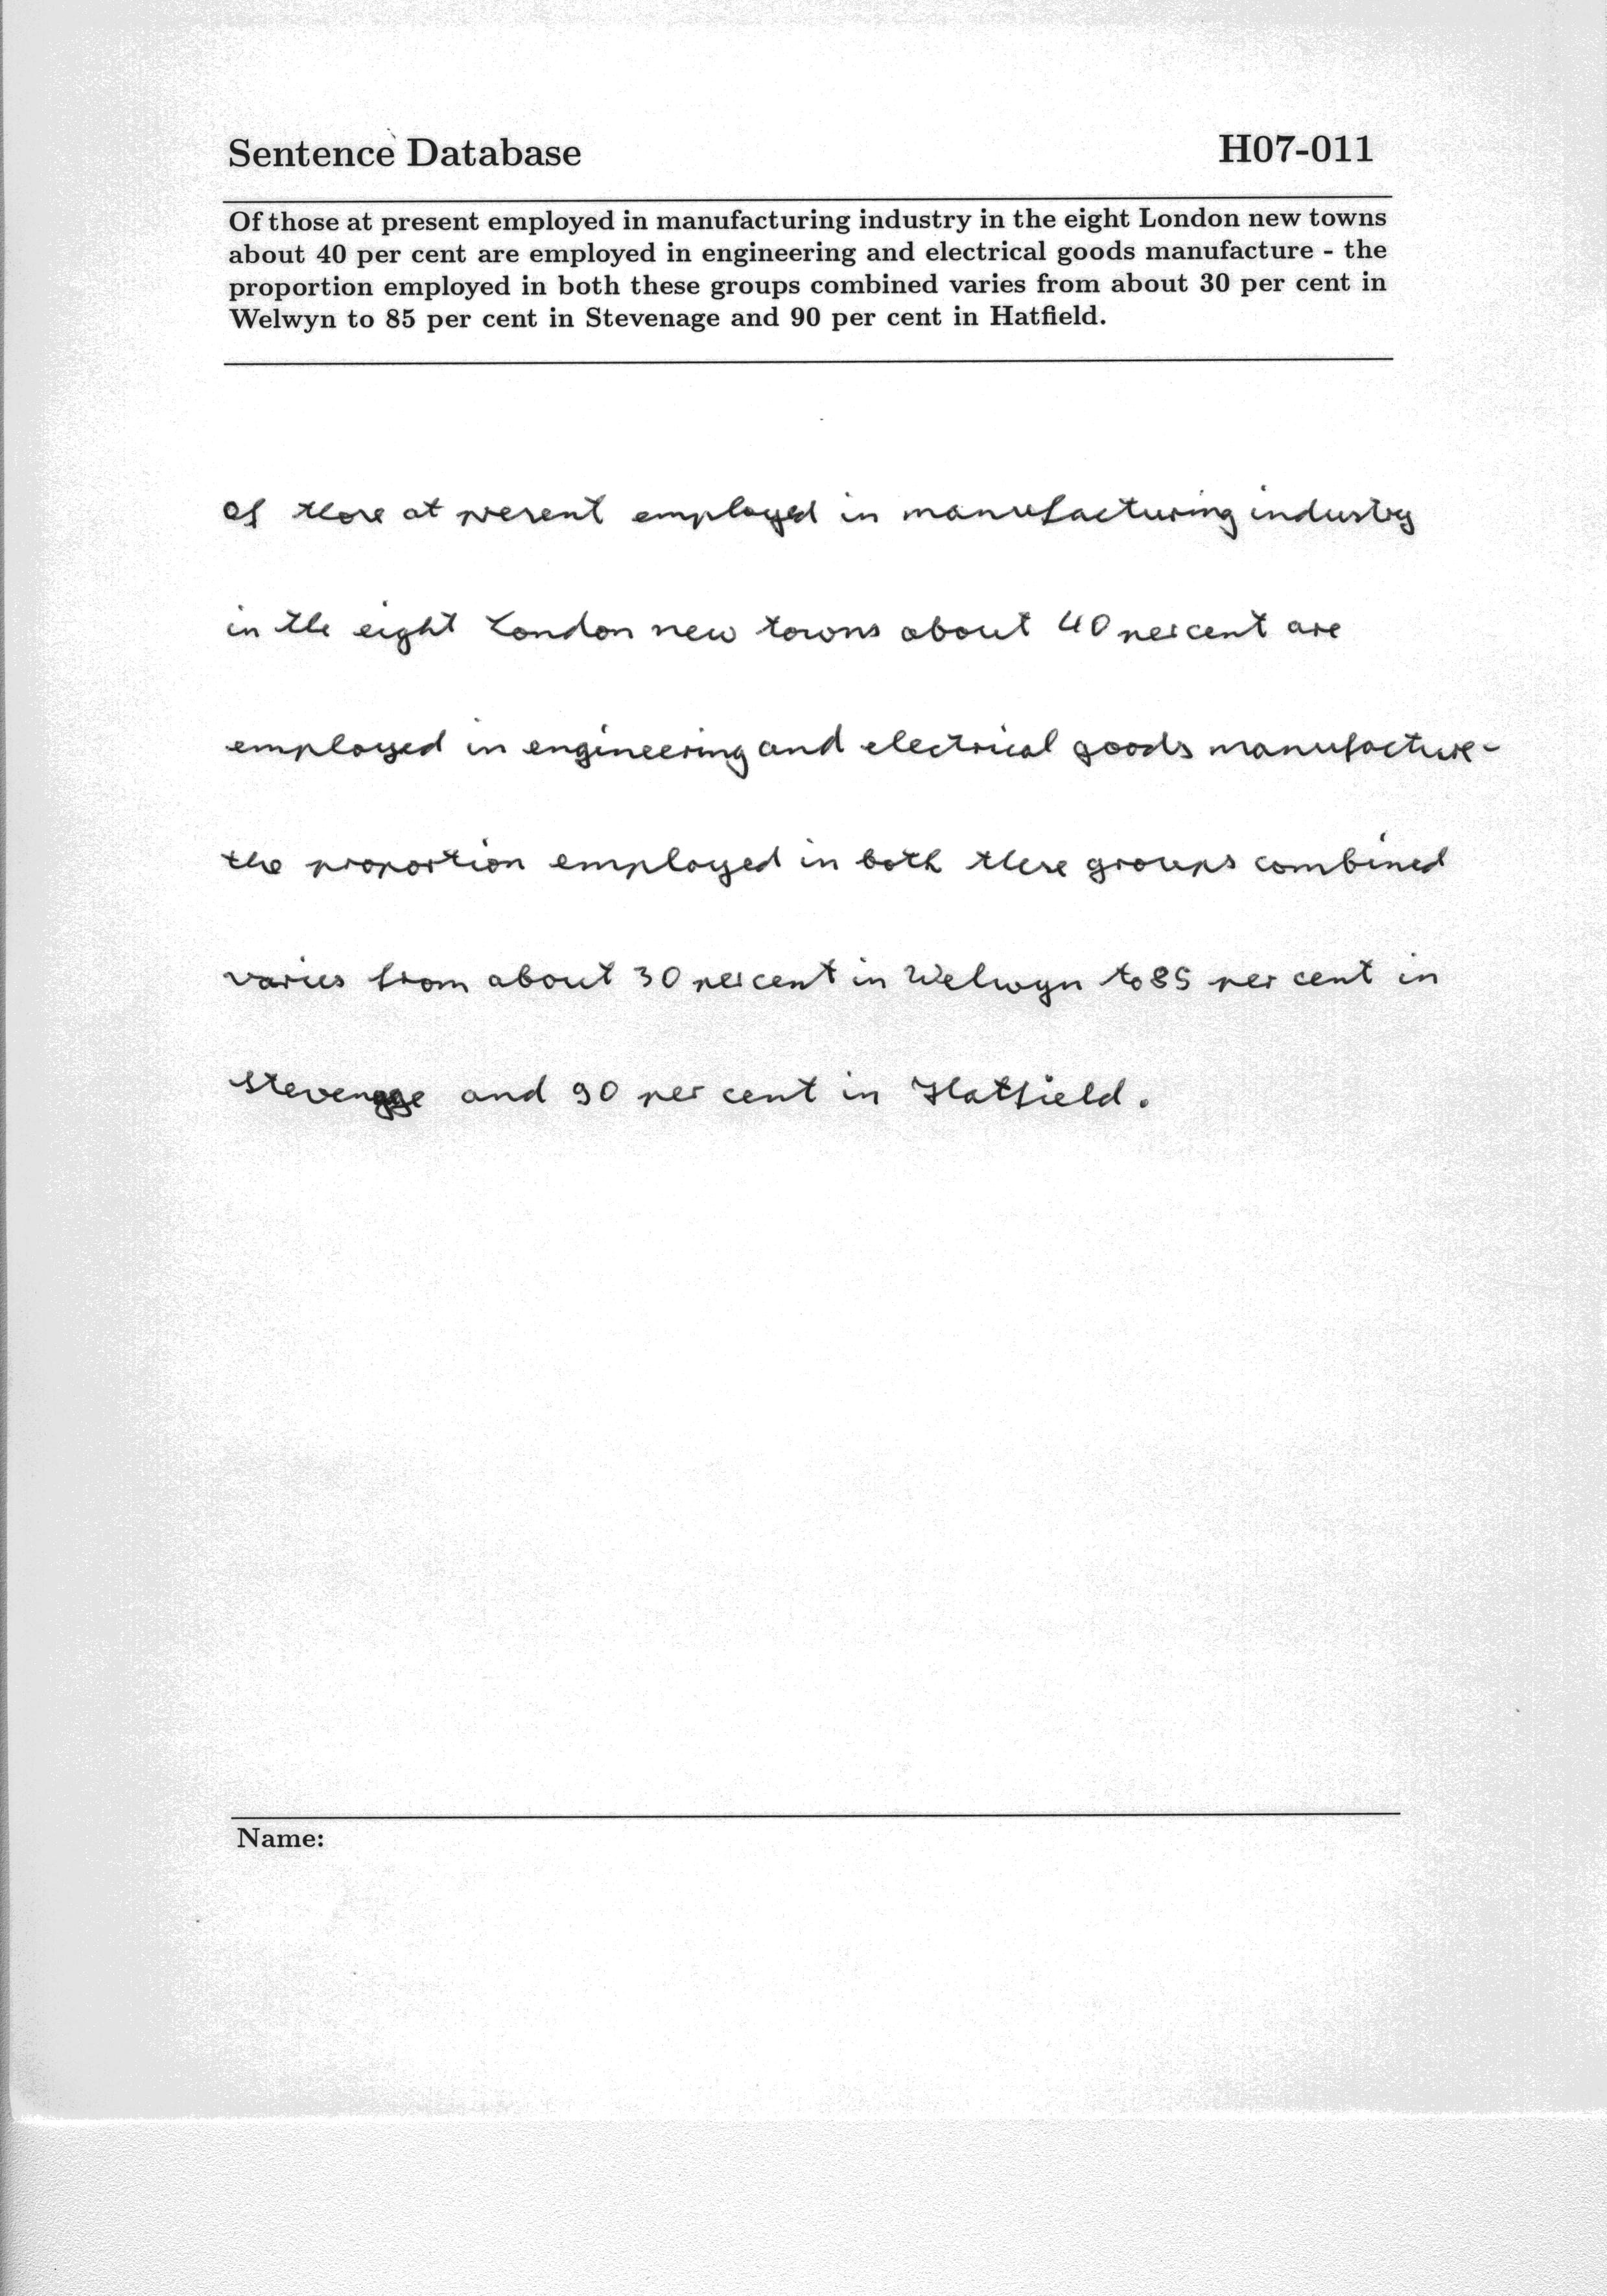 Sentence Database H07-011
Of those at present employed in manufacturing industry in the eight London new towns
about 40 per cent are employed in engineering and electrical goods manufacture - the
proportion employed in both these groups combined varies from about 30 per cent in
Welwyn to 85 per cent in Stevenage and 90 per cent in Hatfield.
Of those at present employed in manufacturing industry
in the eight London new towns about 40 per cent are
employed in engineering and electrical goods manufacture -
the proportion employed in both these groups combined
varies from about 30 per cent in Welwyn to 85 per cent in
Stevenage and 90 per cent in Hatfield.
Name: